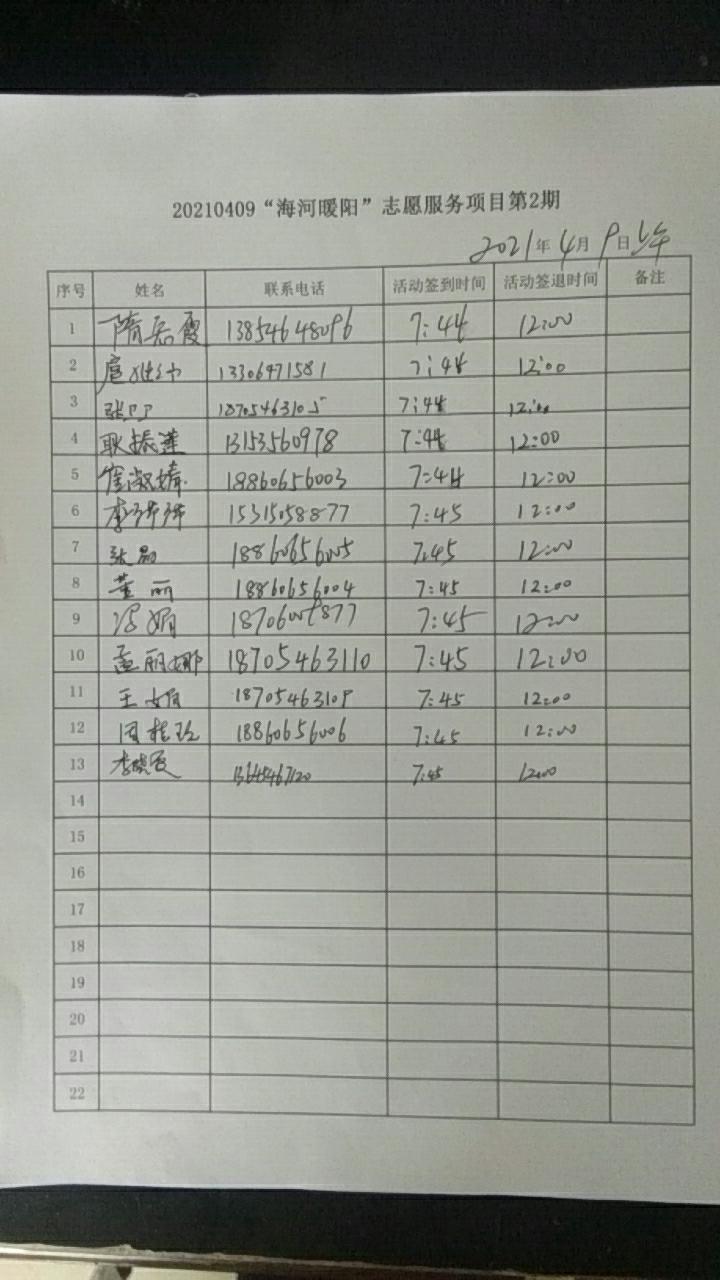 20210409“海河暖阳”志愿服务项目第2期
2021年4月9日上午
序号 姓名 联系电话 活动签到时间 活动签退时间 备注
1 隋 霞 13854648096 7:44 12:00
2 13306471581 7:44 12:00
3 张 18705463105 7:44 12:00
4 耿振莲 13153560978 7:44 12:00
5 崔淑婧 18860656003 7:44 12:00
6 李萍萍 15315058877 7:45 12:00
7 张勋 18860656005 7:45 12:00
8 董丽 18860656004 7:45 12:00
9 冯娟 7:45 12:00
10 孟丽娜 18705463110 7:45 12:00
11 王娟 18705463109 7:45 12:00
12 周桂玲 18860656006 7:45 12:00
13 李晓霞 7:45 12:00
14
15
16
17
18
19
20
21
22